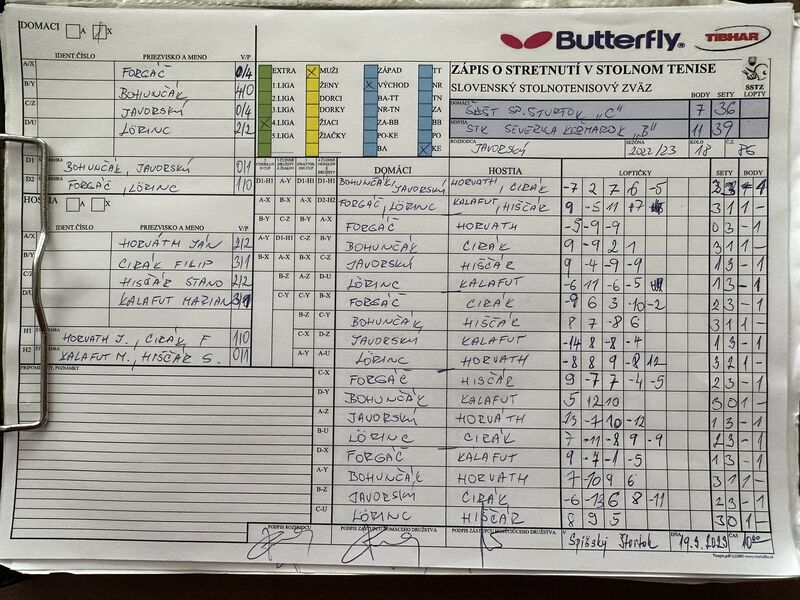 DOMACI A X
Butterfly
TIBHAR
IDENT.ČÍSLO PRIEZVISKO A MENO V/P
A/X FORGÁČ 0/4
B/Y BOHUNČÁK 4/0
C/Z JAVORSKÝ 0/4
D/U LÖRINC 2/2
EXTRA MUŽI ZÁPAD TT
1.LIGA ŽENY VÝCHOD NR
2.LIGA DORCI BA-TT TN
3.LIGA DORKY NR-TN ZA
4.LIGA ŽIACI ZA-BB BB
5.LIGA ŽIAČKY PO-KE PO
BA KE
ZÁPIS O STRETNUTÍ V STOLNOM TENISE
SLOVENSKÝ STOLNOTENISOVÝ ZVÄZ
SSTZ
BODY SETY LOPTY
DOMÁCI ŠKST SP. ŠTVRTOK "C" 7 36
HOSTIA STK SEVERKA KEŽMAROK "B" 11 39
ROZHODCA JAVORSKÝ SEZÓNA 2022/23 KOLO 18 Č.Z. 76
D1 BOHUNČÁK, JAVORSKÝ 0/1
D2 FORGÁČ, LÖRINC 1/0
HOSTIA A X
IDENT.ČÍSLO PRIEZVISKO A MENO V/P
A/X HORVÁTH JÁN 2/2
B/Y CIRÁK FILIP 3/1
C/Z HIŠČÁR STANO 2/2
D/U KALAFUT MARIAN 3/1
H1 HORVATH J, CIRÁK F 1/0
H2 KALAFUT M, HIŠČÁR S. 0/1
PRIPOMIENKY, POZNÁMKY
DOMÁCI HOSTIA LOPTIČKY SETY BODY
D1-H1 BOHUNČÁK, JAVORSKÝ HORVATH, CIRÁK -7 2 7 6 -5
D2-H2 FORGÁČ, LÖRINC KALAFUT, HIŠČÁR 9 -5 11 3 1 1 -
A-X FORGÁČ HORVATH -5 -9 -9 0 3 - 1
B-Y BOHUNČÁK CIRÁK 9 -9 2 1 3 1 1 -
C-Z JAVORSKÝ HIŠČÁR 9 -4 -9 -9 1 3 - 1
D-U LÖRINC KALAFUT -6 11 -6 -5 1 3 - 1
B-X FORGÁČ CIRÁK -9 6 3 -10 -2 2 3 - 1
C-Y BOHUNČÁK HIŠČÁR 8 7 -8 6 3 1 1 -
D-Z JAVORSKÝ KALAFUT -14 8 -8 -4 1 3 - 1
A-U LÖRINC HORVATH -8 8 9 -8 12 3 2 1 -
C-X FORGÁČ HISČÁR 9 -7 7 -4 -5 2 3 - 1
D-Y BOHUNČÁK KALAFUT 5 12 10 3 0 1 -
A-Z JAVORSKÝ HORVÁTH -13 -7 10 -12 1 3 - 1
B-U LÖRINC CIRÁK 7 -11 -8 9 -9 2 3 - 1
D-X FORGÁČ KALAFUT 9 -7 -1 -5 1 3 - 1
A-Y BOHUNČÁK HORVATH 7 -10 9 6 3 1 1 -
B-Z JAVORSKÝ CIRÁK -6 -13 6 8 -11 2 3 - 1
C-U LÖRINC HISČÁR 8 9 5 3 0 1 -
PODPIS ROZHODCU PODPIS ZÁSTUPCU DOMÁCEHO DRUŽSTVA V Spišský Štvrtok DŇA 19.3.2023 ČAS 10:00